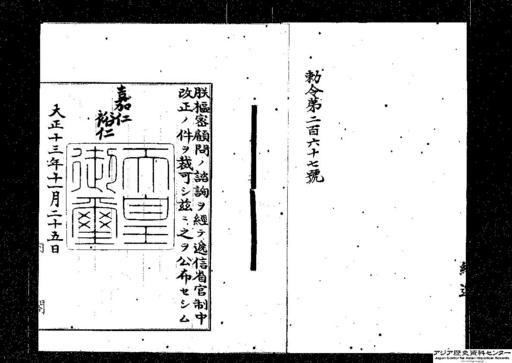 勅令第二百六十七號
朕樞密顧問ノ諮詢ヲ經テ遞信省官制中
改正ノ件ヲ裁可シ玆ニ之ヲ公布セシム
嘉仁
裕仁
天皇
御璽
大正十三年十一月二十五日
内閣
アジア歴史資料センター
Japan Center for Asian Historical Records